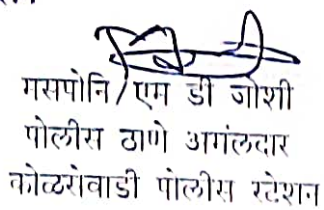 मसपोनि/एम डी जोशी
पोलीस ठाणे अमंलदार
कोळसेवाडी पोलीस स्टेशन